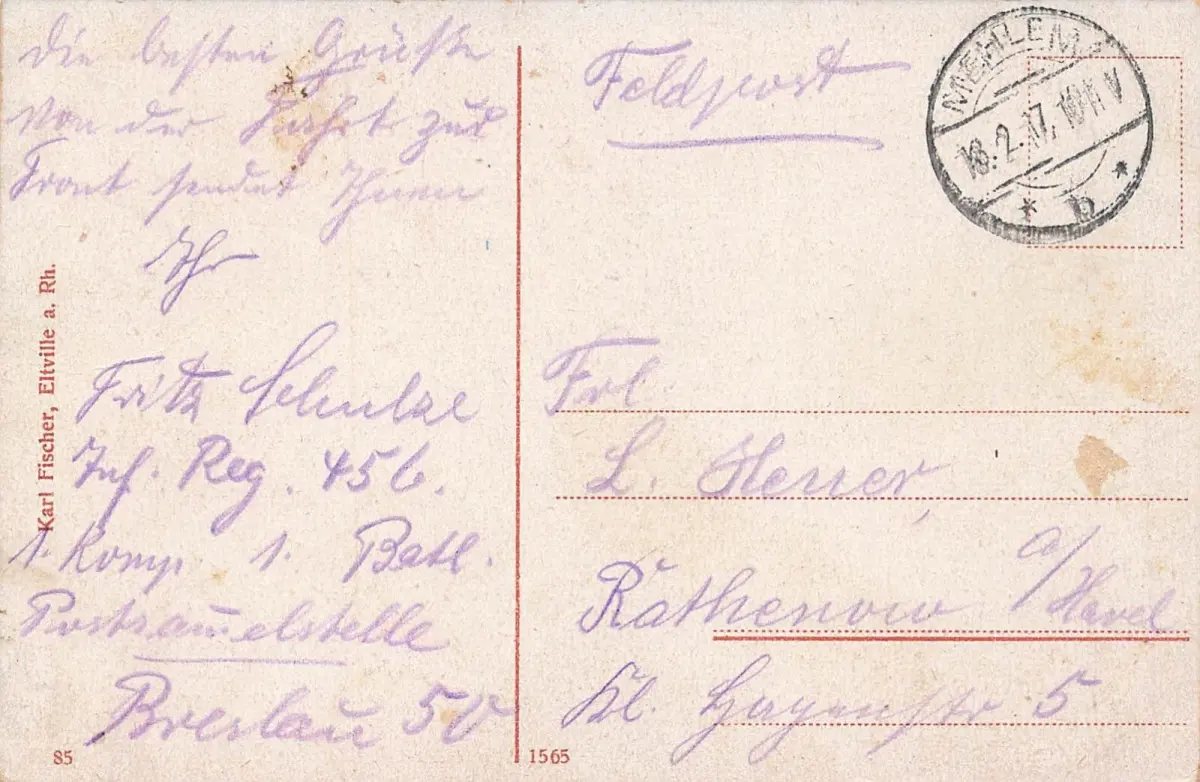 Die besten Grüße
von der Fahrt zur
Front sendet Ihnen
Ihr
Fritz Schulze
Inf. Reg. 456.
1. Komp. 1. Batl.
Postsam̅elstelle
Breslau 50
Karl Fischer, Eltville a. Rh.
85
1565
Feldpost
MEHLEM
18.2.17. 10-11 V
* b *
Frl.
L.
Rathenow a/Havel
Kl. Hagenstr 5